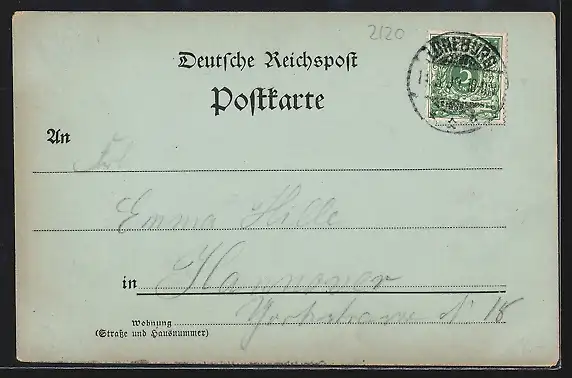 2120
Deutsche Reichspost
Postkarte
LÜNEBURG
5
An
Frl.
Emma Hille
in Hannover
Wohnung Yorkstrasse N 18
(Straße und Hausnummer)